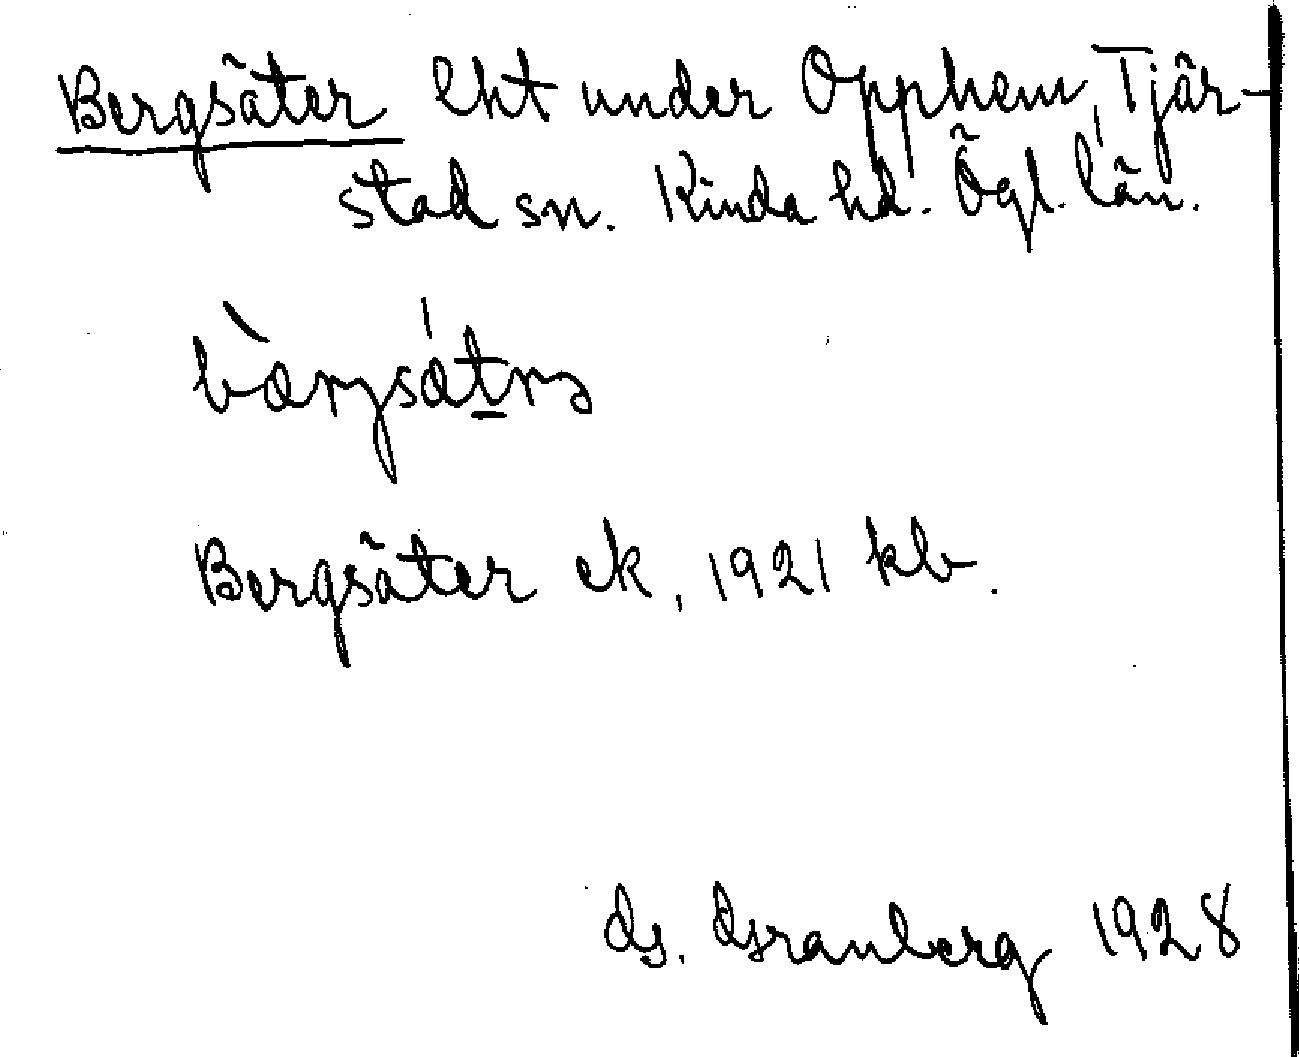 Bergsäter lht under Opphem, Tjär-
stad sn. Kinda hd. Ögl. län.
bàrysátrə
Bergsäter lk, 1921 kb.
G. Granberg 1928